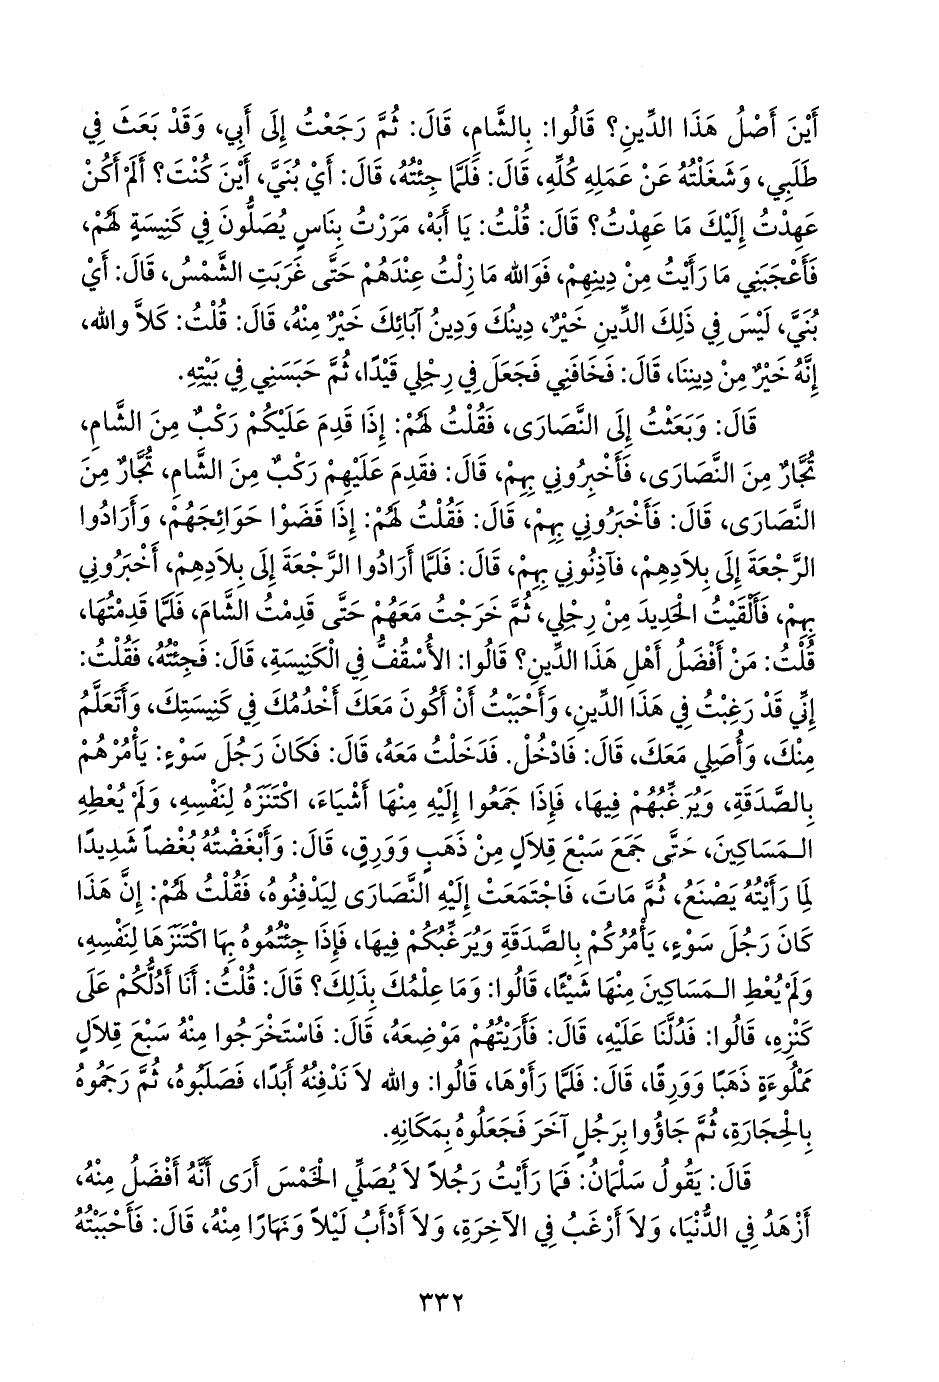 أَيْنَ أَصْلُ هَذَا الدِّينِ؟ قَالُوا: بِالشَّامِ، قَالَ: ثُمَّ رَجَعْتُ إِلَى أَبِي، وَقَدْ بَعَثَ فِي
طَلَبِي، وَشَغَلْتُهُ عَنْ عَمَلِهِ كُلِّهِ، قَالَ: فَلَمَّا جِئْتُهُ، قَالَ: أَيْ بُنَيَّ، أَيْنَ كُنْتَ؟ أَلَمْ أَكُنْ
عَهِدْتُ إِلَيْكَ مَا عَهِدْتُ؟ قَالَ: قُلْتُ: يَا أَبَهْ، مَرَرْتُ بِنَاسٍ يُصَلُّونَ فِي كَنِيسَةٍ لَهُمْ،
فَأَعْجَبَنِي مَا رَأَيْتُ مِنْ دِينِهِمْ، فَوَالله مَا زِلْتُ عِنْدَهُمْ حَتَّى غَرَبَتِ الشَّمْسُ، قَالَ: أَيْ
بُنَيَّ، لَيْسَ فِي ذَلِكَ الدِّينِ خَيْرٌ، دِينُكَ وَدِينُ آبَائِكَ خَيْرٌ مِنْهُ، قَالَ: قُلْتُ: كَلاَّ والله،
إِنَّهُ خَيْرٌ مِنْ دِينِنَا، قَالَ: فَخَافَنِي فَجَعَلَ فِي رِجْلِي قَيْدًا، ثُمَّ حَبَسَنِي فِي بَيْتِهِ.
قَالَ: وَبَعَثْتُ إِلَى النَّصَارَى، فَقُلْتُ لَهُمْ: إِذَا قَدِمَ عَلَيْكُمْ رَكْبٌ مِنَ الشَّامِ،
تُجَّارٌ مِنَ النَّصَارَى، فَأَخْبِرُونِي بِهِمْ، قَالَ: فقَدِمَ عَلَيْهِمْ رَكْبٌ مِنَ الشَّامِ، تُجَّارٌ مِنَ
النَّصَارَى، قَالَ: فَأَخْبَرُونِي بِهِمْ، قَالَ: فَقُلْتُ لَهُمْ: إِذَا قَضَوْا حَوَائِجَهُمْ، وَأَرَادُوا
الرَّجْعَةَ إِلَى بِلاَدِهِمْ، فآذِنُونِي بِهِمْ، قَالَ: فَلَمَّا أَرَادُوا الرَّجْعَةَ إِلَى بِلاَدِهِمْ، أَخْبَرُونِي
بِهِمْ، فَأَلْقَيْتُ الْحَدِيدَ مِنْ رِجْلِي، ثُمَّ خَرَجْتُ مَعَهُمْ حَتَّى قَدِمْتُ الشَّامَ، فَلَمَّا قَدِمْتُهَا،
قُلْتُ: مَنْ أَفْضَلُ أَهْلِ هَذَا الدِّينِ؟ قَالُوا: الأُسْقُفُّ فِي الْكَنِيسَةِ، قَالَ: فَجِئْتُهُ، فَقُلْتُ:
إِنِّي قَدْ رَغِبْتُ فِي هَذَا الدِّينِ، وَأَحْبَبْتُ أَنْ أَكُونَ مَعَكَ أَخْدُمُكَ فِي كَنِيسَتِكَ، وَأَتَعَلَّمُ
مِنْكَ، وَأُصَلِي مَعَكَ، قَالَ: فَادْخُلْ. فَدَخَلْتُ مَعَهُ، قَالَ: فَكَانَ رَجُلَ سَوْءٍ: يَأْمُرُهُمْ
بِالصَّدَقَةِ، وَيُرَغِّبُهُمْ فِيهَا، فَإِذَا جَمَعُوا إِلَيْهِ مِنْهَا أَشْيَاءَ، اكْتَنَزَهُ لِنَفْسِهِ، وَلَمْ يُعْطِهِ
الـمَسَاكِينَ، حَتَّى جَمَعَ سَبْعَ قِلاَلٍ مِنْ ذَهَبٍ وَوَرِقٍ، قَالَ: وَأَبْغَضْتُهُ بُغْضاً شَدِيدًا
لِمَا رَأَيْتُهُ يَصْنَعُ، ثُمَّ مَاتَ، فَاجْتَمَعَتْ إِلَيْهِ النَّصَارَى لِيَدْفِنُوهُ، فَقُلْتُ لَهُمْ: إِنَّ هَذَا
كَانَ رَجُلَ سَوْءٍ، يَأْمُرُكُمْ بِالصَّدَقَةِ وَيُرَغِّبُكُمْ فِيهَا، فَإِذَا جِئْتُمُوهُ بِهَا اكْتَنَزَهَا لِنَفْسِهِ،
وَلَمْ يُعْطِ الـمَسَاكِينَ مِنْهَا شَيْئًا، قَالُوا: وَمَا عِلْمُكَ بِذَلِكَ؟ قَالَ: قُلْتُ: أَنَا أَدُلُّكُمْ عَلَى
كَنْزِهِ، قَالُوا: فَدُلَّنَا عَلَيْهِ، قَالَ: فَأَرَيْتُهُمْ مَوْضِعَهُ، قَالَ: فَاسْتَخْرَجُوا مِنْهُ سَبْعَ قِلاَلٍ
مَمْلُوءَةٍ ذَهَبًا وَوَرِقًا، قَالَ: فَلَمَّا رَأَوْهَا، قَالُوا: والله لاَ نَدْفِنُهُ أَبَدًا، فَصَلَبُوهُ، ثُمَّ رَجَمُوهُ
بِالْحِجَارَةِ، ثُمَّ جَاؤُوا بِرَجُلٍ آخَرَ فَجَعَلُوهُ بِمَكَانِهِ.
قَالَ: يَقُولُ سَلْمَانُ: فَمَا رَأَيْتُ رَجُلاً لاَ يُصَلِّي الْخَمْسَ أَرَى أَنَّهُ أَفْضَلُ مِنْهُ،
أَزْهَدُ فِي الدُّنْيَا، وَلاَ أَرْغَبُ فِي الآخِرَةِ، وَلاَ أَدْأَبُ لَيْلاً وَنَهَارًا مِنْهُ، قَالَ: فَأَحْبَبْتُهُ
٣٣٢